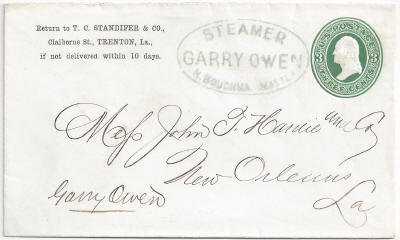 Return to T. C. STANDIFER & CO.,
Claiborne St., TRENTON, La.,
if not delivered within 10 days.
STEAMER
GARRY OWEN
N. BOUCHMA
U.S. POSTAGE
THREE CENTS
Mess John T. Hardie and Co
New Orleans
La
Garry Owen